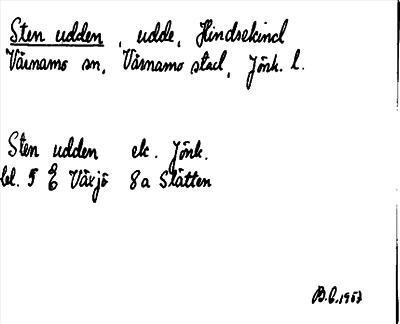 Sten udden, udde, Hindsekind
Värnamo sn, Värnamo stad, Jönk. l.
Sten udden ek. Jönk.
bl. 5 E Växjö 8a Slätten
B.E. 1957